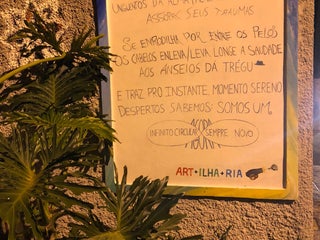 UNGUENTOS DA ALMA
ASSOPRAR SEUS
SE EMPODILHA POR ENTRE OS PELOS
OS CABELOS ENLEVA/LEVA LONGE A SAUDADE
AOS ANSEIOS DÁ TRÉGU
E TRAZ PRO INSTANTE, MOMENTO SERENO
DESPERTOS SABEMOS: SOMOS UM.
INFINITO CIRCULAR SEMPRE NOVO
AGORA
ART•ILHA•RIA